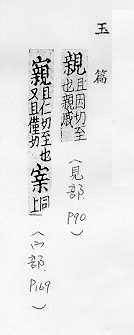 玉篇
親 且因切至也親戚
（見部.P90）
寴 且仁切至也又且僅切 𡩋 同上
（宀部.P169）